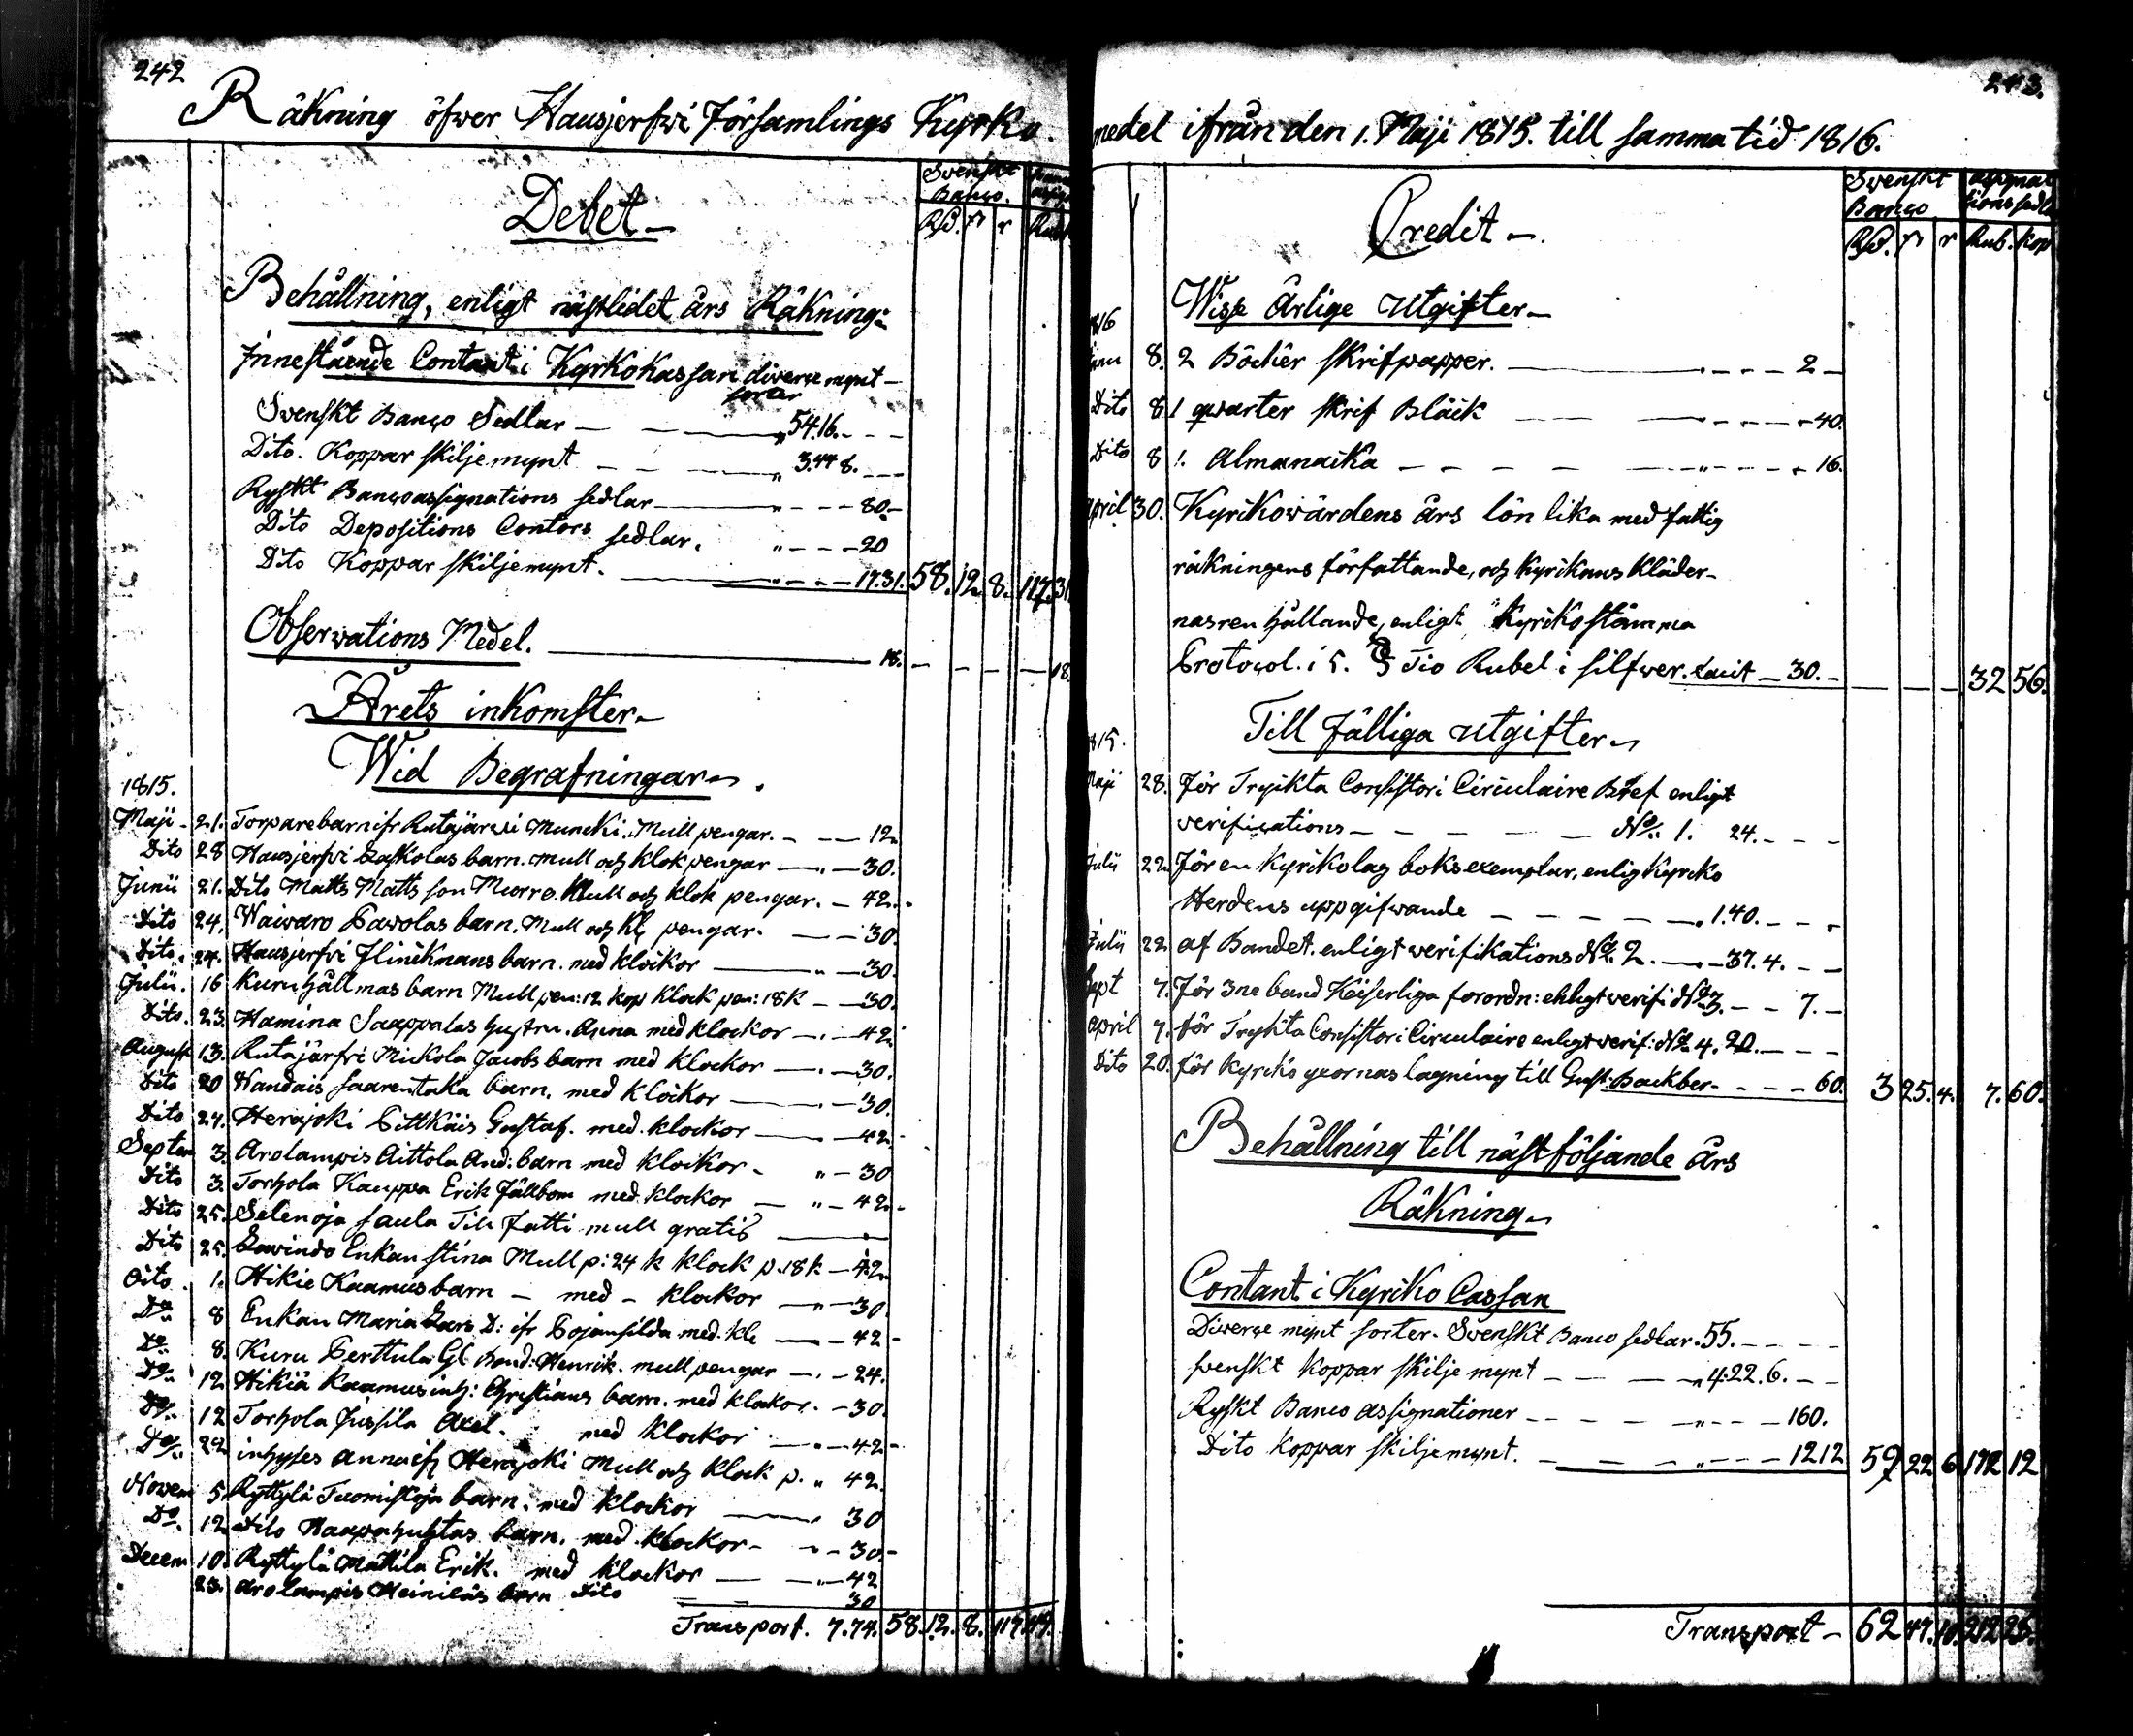 242
Räkning öfwer Hausjerfwi Församlings Kyrko
Svenskt Banco.
Rd. s r Rub
Debet
Behållning, enligt nästledet års Räkning:
Innestående Contant i Kyrkokassan diverse mynt
sorter
Svenskt Banco Sedlar 54.16.
Dito. Koppar skiljemynt 3.44 8.
Ryskt Bancoassignations sedlar 80.
Dito Depositions Contors sedlar. 20
Dito Koppar skiljemynt. 17.31. 58. 12. 8. 117.31.
Observations Medel. 18. 18.
Årets inkomster
Wid Begrafningar
1815.
Maji 21. Torparebarn ifr Rutajärwi Muncki. Mull pengar. 12
Dito 28 Hausjerfvi Paskolas barn. mull och klok pengar 30.
Junii 21. Dito Matts Matts son Murro. Mull och klok pengar. 42.
Dito 24. Waiwaro Pawolas barn. Mull och Kl pengar. 30.
Dito. 24. Hausjerfvi Flinckmans barn. med klockor 30.
Julii. 16 Kuru hällmas barn Mull pen: 12 kop Klock pen: 18 K 30.
Dito. 23. Hamina Saappalas hustru. Anna med klockor 42.
August 13. Rutajärfvi Mickola Jacobs barn med klockor 30.
Dito 20 Wandais saarentaka barn. med klockor 30.
Dito 27. Herajoki Pittkäis Gustaf. med klockor 42.
Septem 3. Arolampis Aittola And: barn med klockor 30
Dito 3. Torhola Kauppa Erik Fällbom med klockor 42.
Dito 25. Selenoja saula Till fatti mull gratis
Dito 25. Enkan stina Mull p: 24 k klock p. 18 k 42.
Octo 1. Hikie Kaamus barn med klockor 30.
Do 8 Enkan Maria Lars D: ifr med. kl 42
Do 8. Kuru Perttula Gl Bond: Henrik. mull pengar 24.
Do 12 Hikiä Kaamus inh: Christians barn. med klockor. 30.
Do 12 Torhola Jussila Axel. med klockor 42
Do 22 inhyses Anna ifr Herajoki Mull och klock p. 42.
Novem 5 Ryttylä Tuomistoja barn. med klockor 30
Do 12 Dito barn. med klockor 30.
Decem 10. Ryttylä Mattila Erik. med klockor 42
23. arolampis Heiniläs barn Dito 30
Transport. 7.74. 58. 12. 8. 117.49.
243.
medel ifrån den 1. Maji 1815. till samma tid 1816.
Swenskt Banco Assignations sedlar
Rd. s r Rub. Kop
Credit
Wisse Årlige Utgifter
1816
8. 2 Böcker skrifpapper. 2
Dito 8 1 qwarter skrif Bläck 40.
Dito 8 1. Almanacka 16.
April 30. Kyrkowärdens års lön lika med fattig
räkningens författande, och Kyrkans Kläder-
nas ren hållande, enligt Kyrkostämma
Protocol. i 5. § Tio Rubel i silfwer. 30. 32 56.
Till fälliga Utgifter
1815.
Maji 28. För Tryckta Consistori Circulaire Bref enligt
verifications No 1. 24.
Julii 22. För en Kyrkolag boks exemplar, enlig Kyrko
Herdens uppgifwande 1.40.
Julii 22 af Bandet. enligt werifikations No 2. 37. 4.
Sept 7. För 3ne band Keiserliga forordn: enligt verifi No 3. 7.
April 7. för Tryckta Consistori Circulaire enligt verif: No 4. 20.
Dito 20. för Kyrko lagning till Gust. Backber 60. 3 25. 4. 7. 60.
Behållning till näst följande års
Räkning
Contant i Kyrko Cassan
Diverse mynt sorter. Svenskt Banco sedlar. 55.
svenskt koppar skilje mynt 4.22. 6.
Ryskt Banco assignationer 160.
Dito Koppar skiljemynt. 12 12 59 22 6 172 12
Transport 62 47. 10. 212 28.